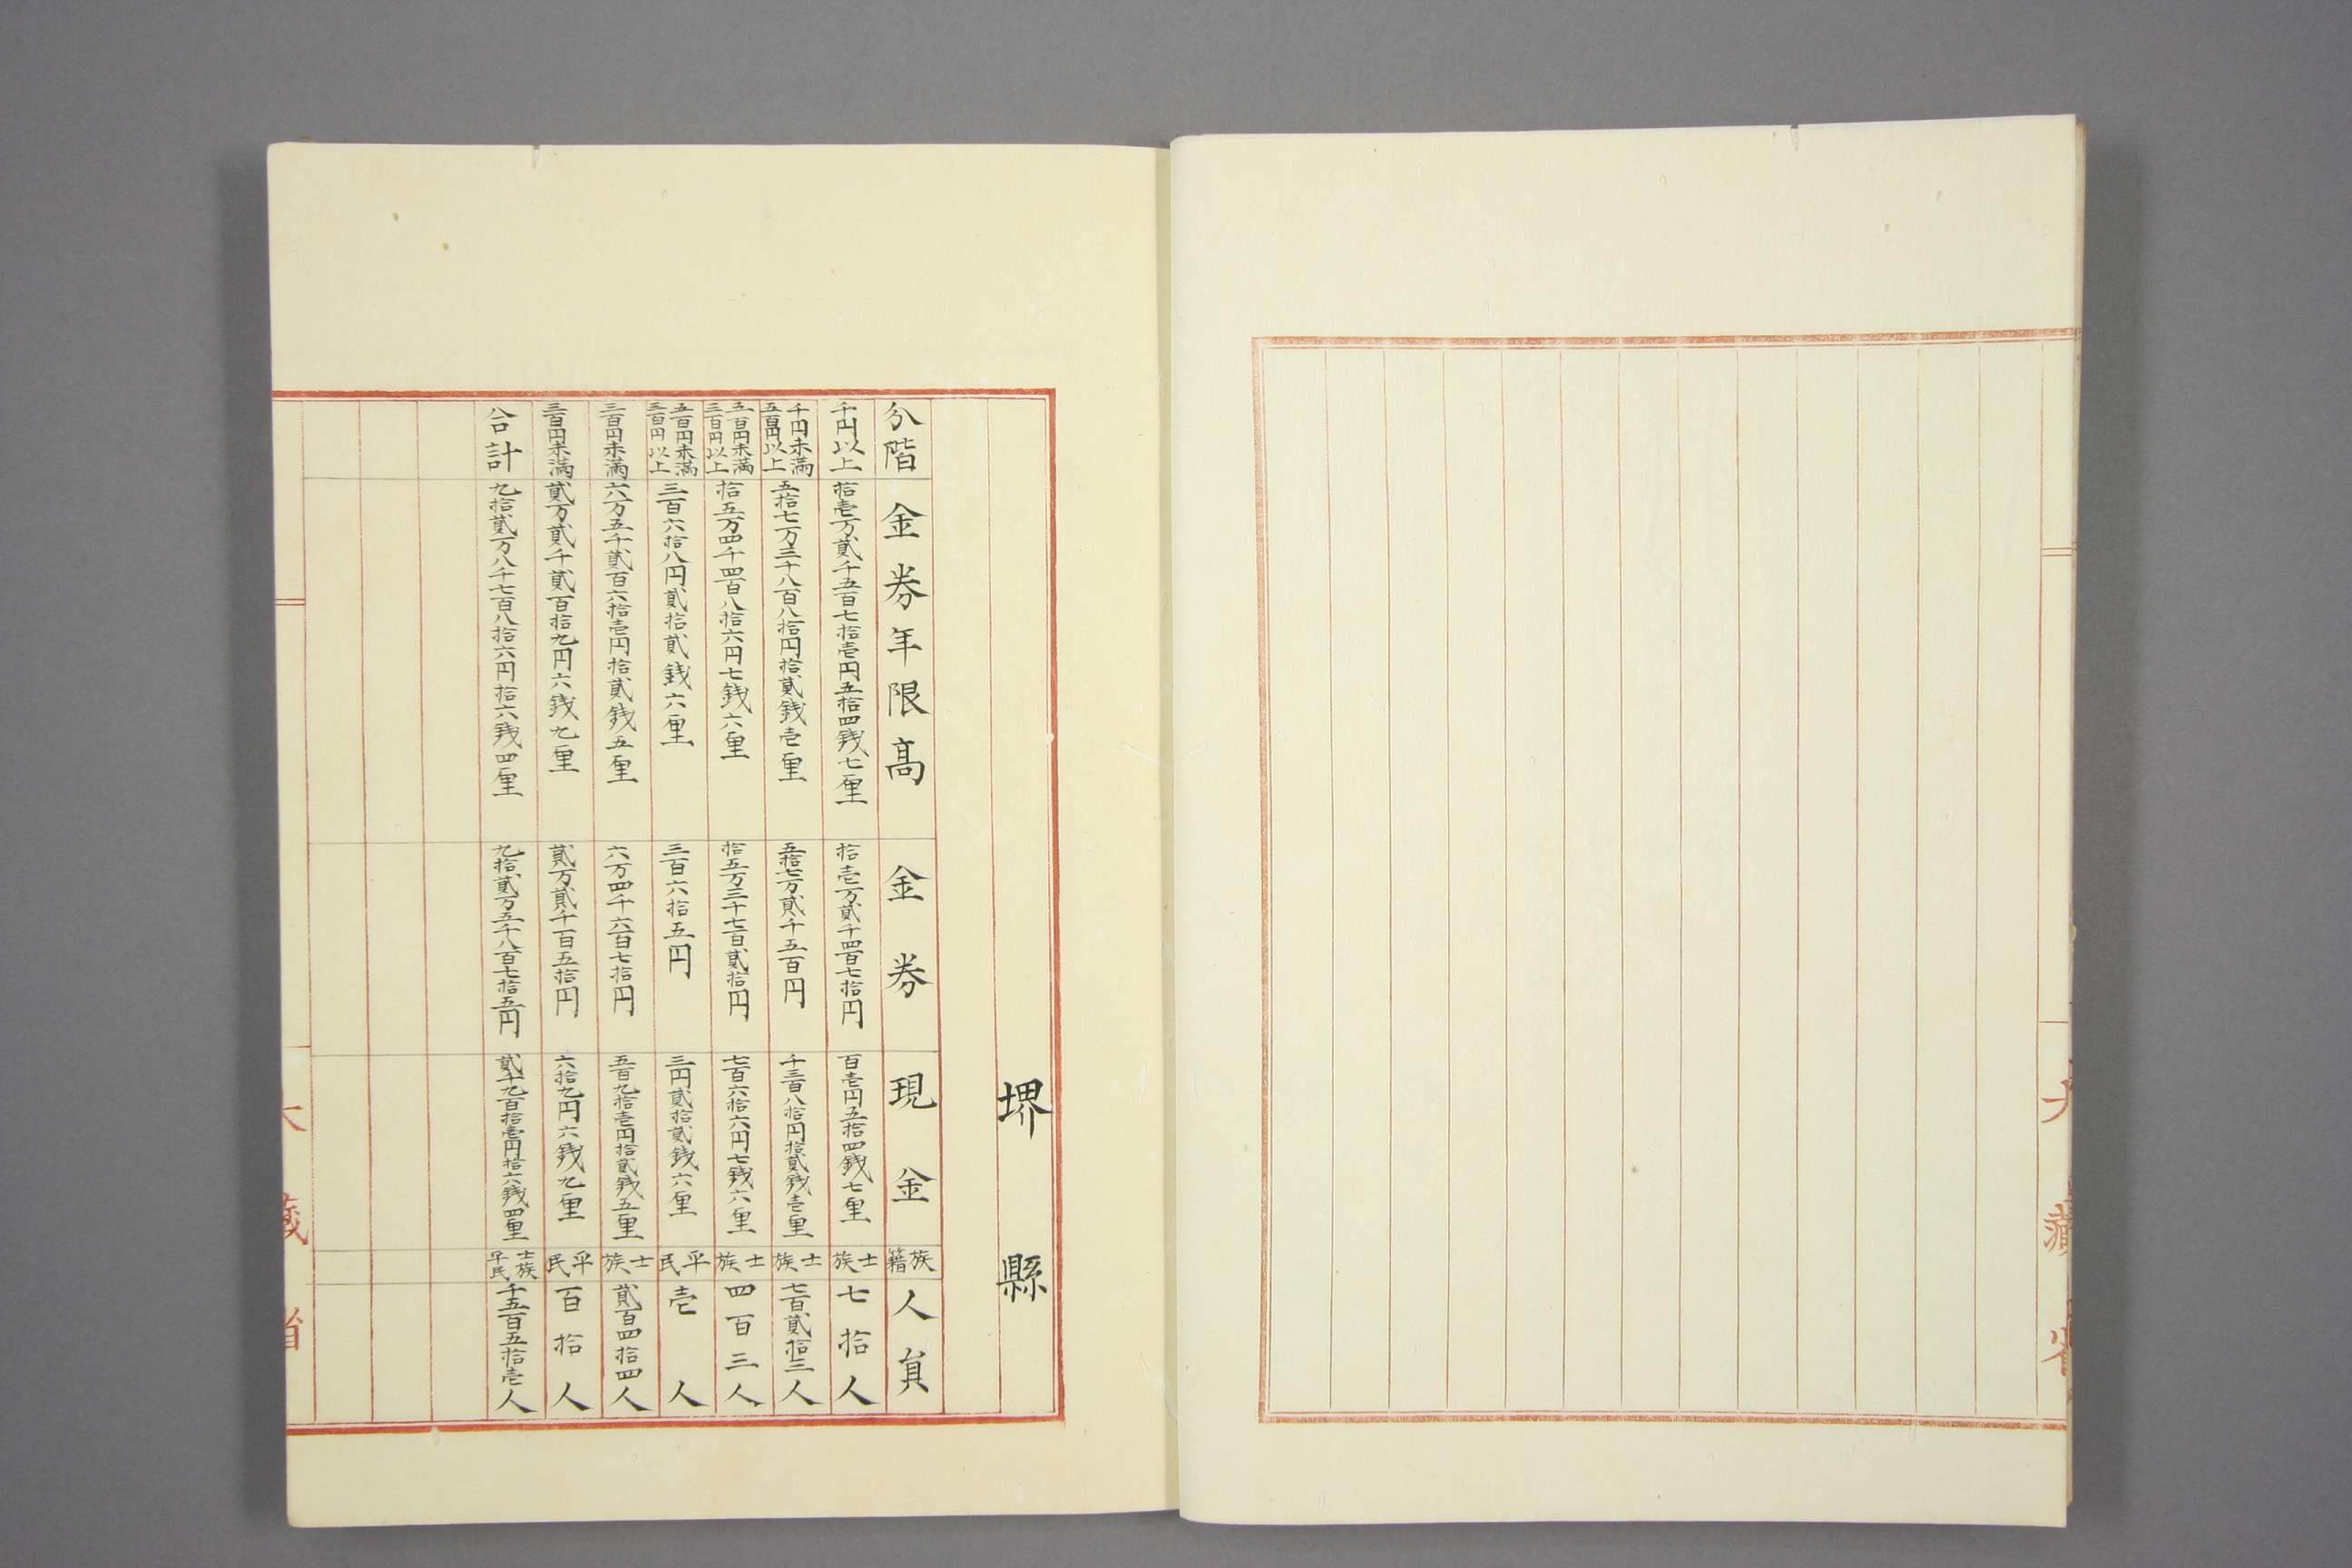 大藏省
堺縣
分階 金券年限高 金券 現金 族籍 人員
千円以上 拾壱万貳千五百七拾壱円五拾四銭七厘 拾壱万貳千四百七拾円 百壱円五拾四銭七厘 士族 七拾人
千円未満五百円以上 五拾七万三千八百八拾円拾貳銭壱厘 五拾七万貳千五百円 千三百八拾円拾貳銭壱厘 士族 七百貳拾三人
五百円未満三百円以上 拾五万四千四百八拾六円七銭六厘 拾五万三千七百貳拾円 七百六拾六円七銭六厘 士族 四百三人
五百円未満三百円以上 三百六拾八円貳拾貳銭六厘 三百六拾五円 三円貳拾貳銭六厘 平民 壱人
三百円未満 六万五千貳百六拾壱円拾貳銭五厘 六万四千六百七拾円 五百九拾壱円拾貳銭五厘 士族 貳百四拾四人
三百円未満 貳万貳千貳百拾九円六銭九厘 貳万貳千百五拾円 六拾九円六銭九厘 平民 百拾人
合計 九拾貳万八千七百八拾六円拾六銭四厘 九拾貳万五千八百七拾五円 貳千九百拾壱円拾六銭四厘 士族平民 千五百五拾壱人
大藏省